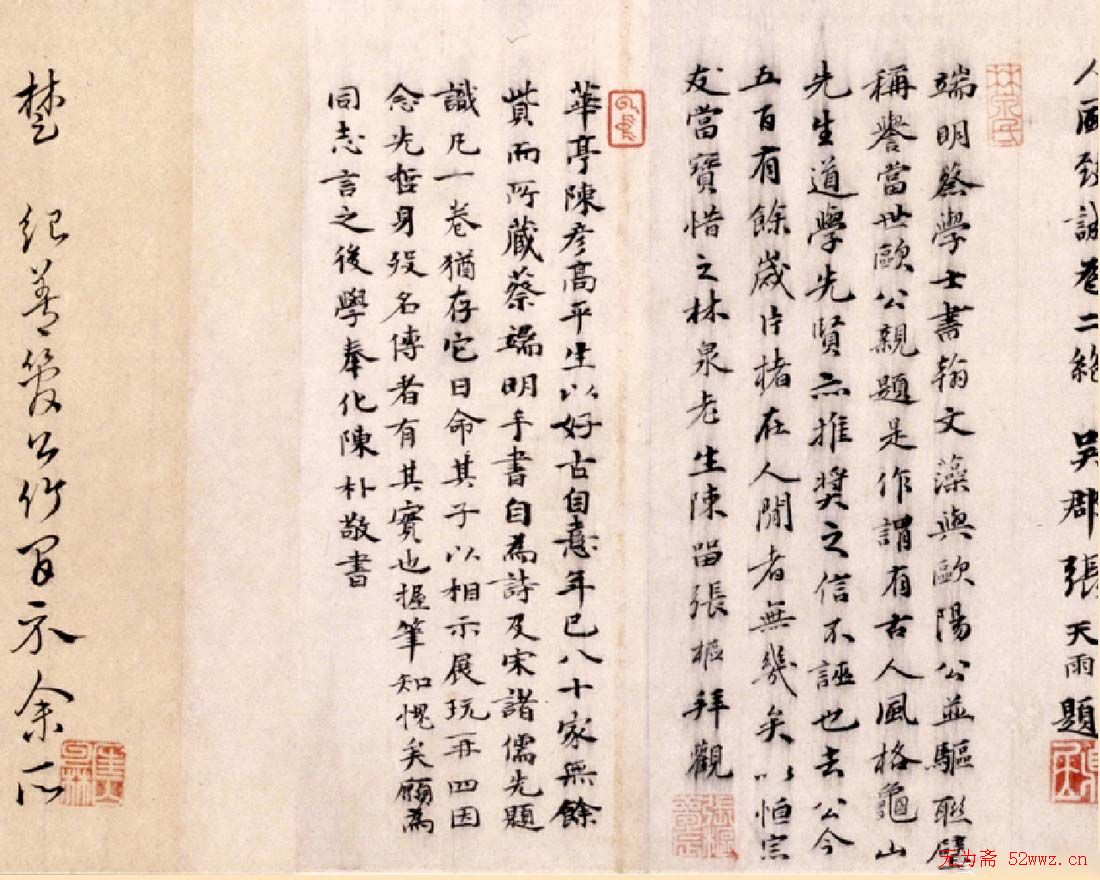 人風致詩卷二絕 吳郡張天雨題
端明蔡學士書翰文藻與歐陽公並驅聯壁
稱譽當世歐公親題是作謂有古人風格龜山
先生道學先賢亦推奬之信不誣也去公今
五百有餘歲片楮在人間者無幾矣以恒宗
友當寶惜之林泉老生陳留張樞拜觀
華亭陳彥高平生以好古自意年已八十家無餘
貲而所藏蔡端明手書自為詩及宋諸儒先題
識凡一卷猶存它日命其子以相示展玩再四因
念先哲身歿名傳者有其實也握筆知愧矣願為
同志言之後學奉化陳朴敬書
楚 紀善 以 示余
天为斋 52wwz.cn